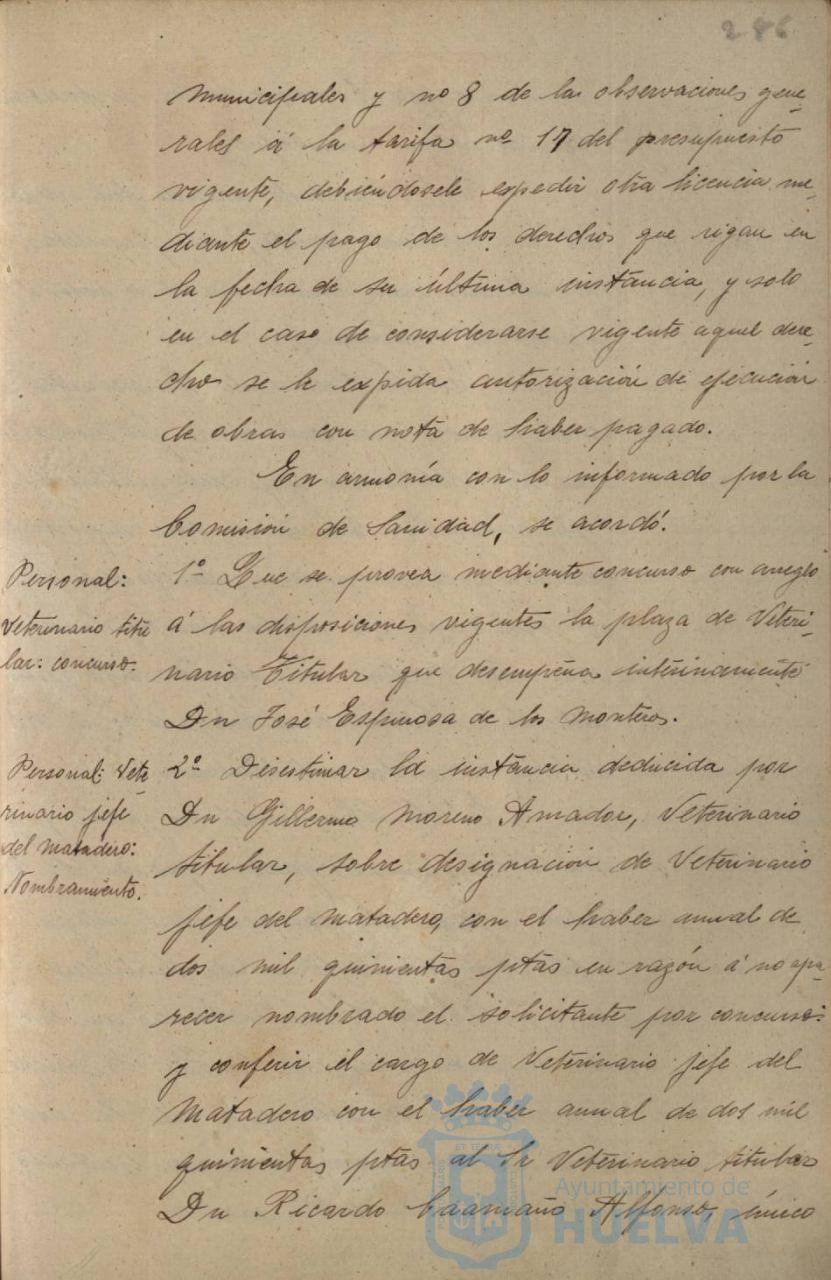 286
municipales y nº 8 de las observaciones gene-
rales á la tarifa nº 17 del presupuesto
vigente, debiéndosele expedir otra licencia me-
diante el pago de los derechos que rigan en
la fecha de su última instancia, y solo
en el caso de considerarse vigente aquel dere-
cho se le expida autorización de ejecución
de obras con nota de haber pagado.
En armonía con lo informado por la
Comisión de Sanidad, se acordó:
Personal:
Veterinario titu
lar: concurso.
1º Que se provea mediante concurso con arreglo
á las disposiciones vigentes la plaza de Veteri-
nario Titular que desempeña interinamente
Dn José Espinosa de los Monteros.
Personal: Vete
rinario jefe
del matadero:
Nombramiento.
2º Desestimar la instancia deducida por
Dn Gillermo Moreno Amador, Veterinario
titular, sobre designación de Veterinario
jefe del matadero, con el haber anual de
dos mil quinientas ptas en razón á no apa-
recer nombrado el solicitante por concurso:
y conferir el cargo de Veterinario jefe del
Matadero con el haber anual de dos mil
quinientas ptas al Sr Veterinario titular
Dn Ricardo Caamaño Alfonso, único
Ayuntamiento de
HUELVA